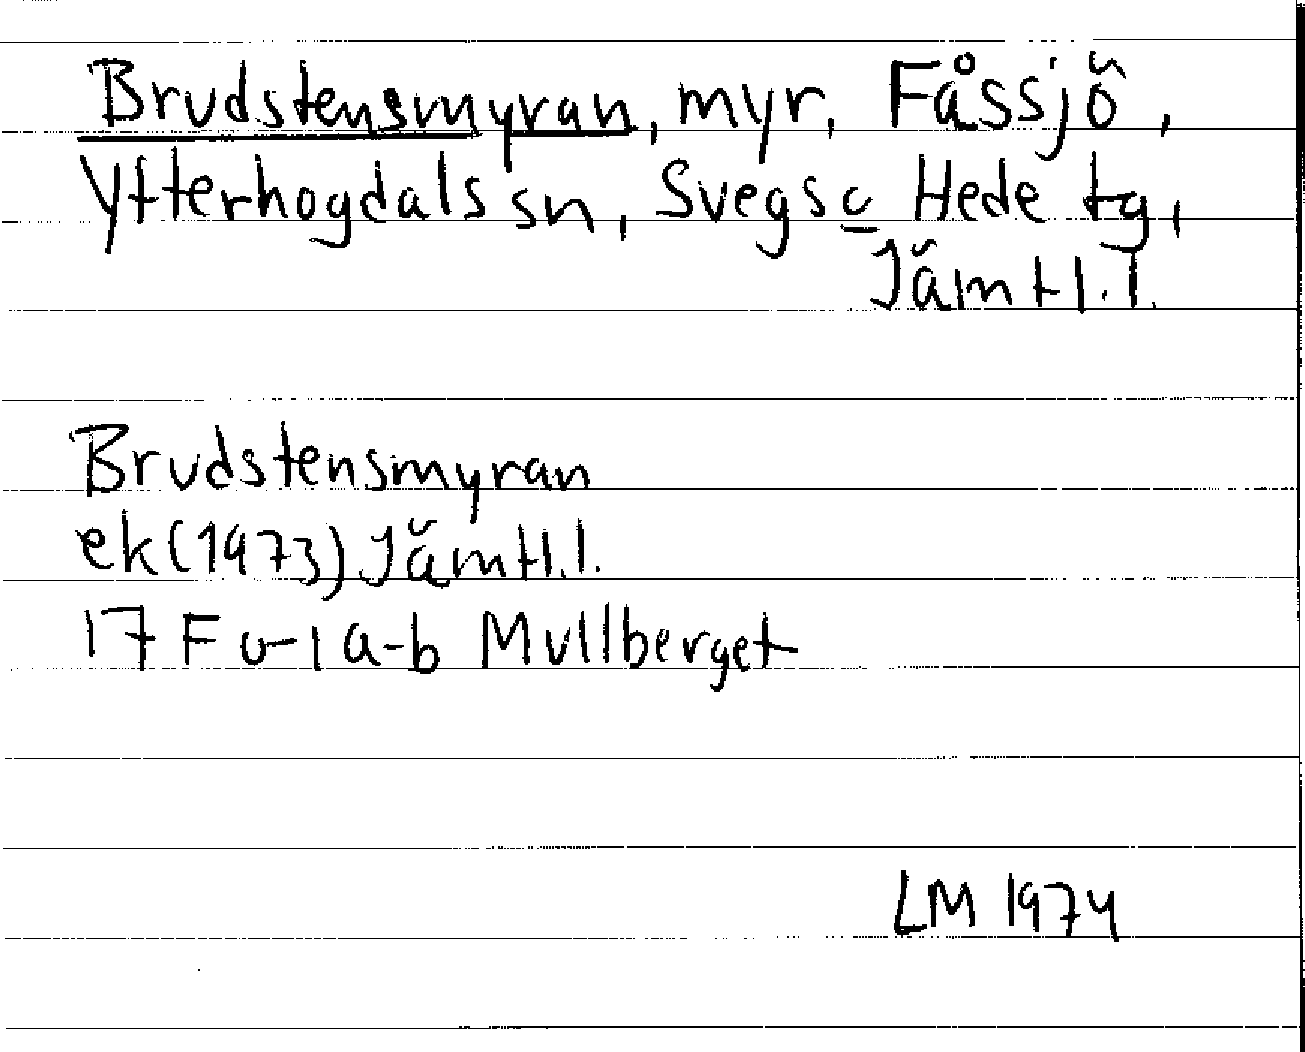 Brudstensmyran, myr, Fåssjö,
Ytterhogdals sn, Svegs o Hede tg,
Jämtl. l.
Brudstensmyran
ek (1973) Jämtl. l.
17 F 0-1 a-b Mullberget
LM 1974